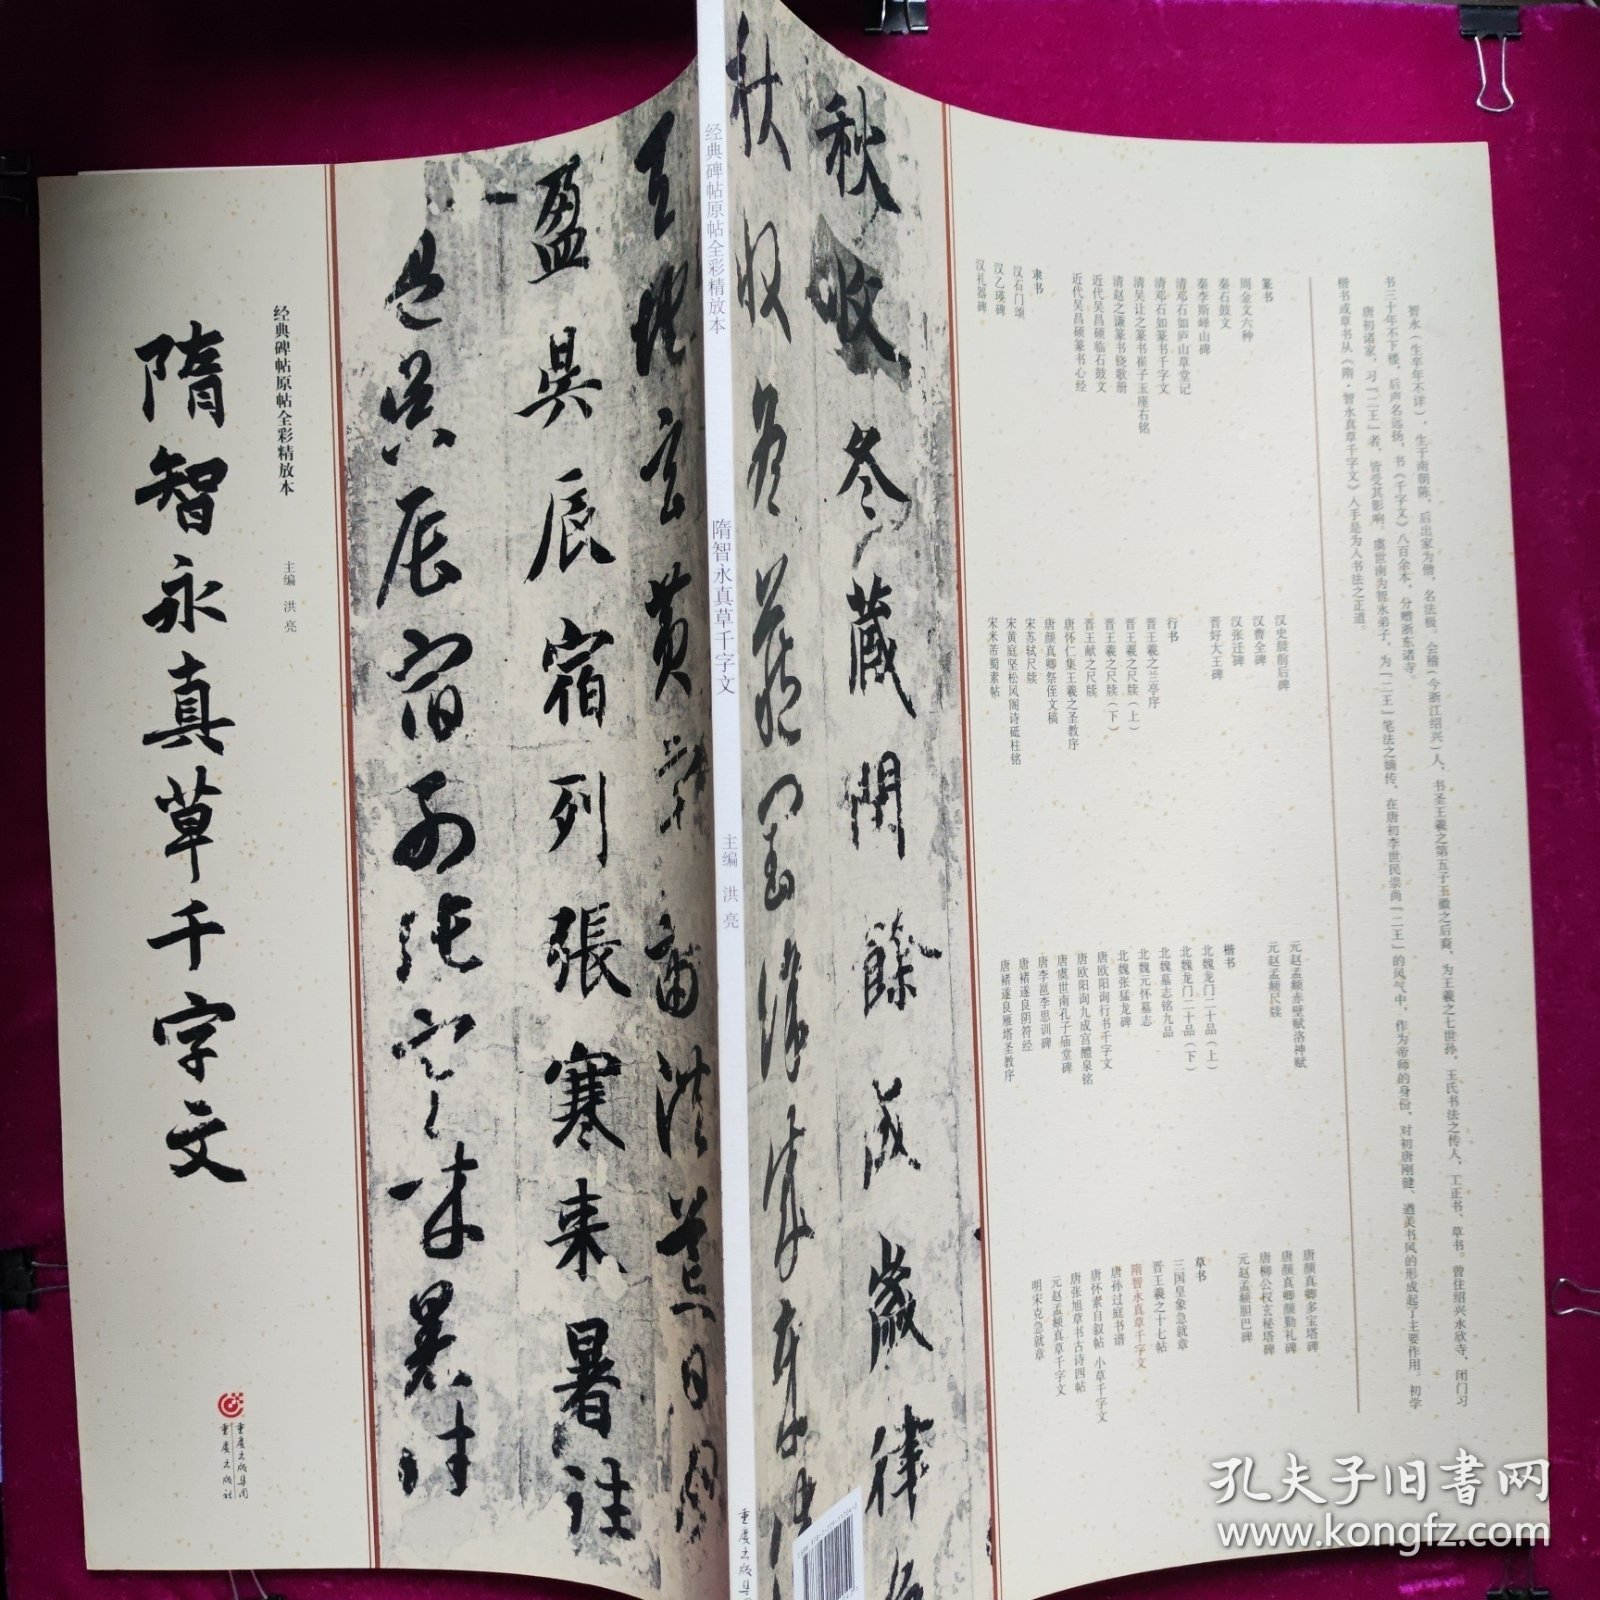 经典碑帖原帖全彩精放本
隋智永真草千字文
主编 洪亮
重庆出版集团
重庆出版社
盈昃辰宿列張寒来暑往
盈昃辰宿列張寒来暑往
天地玄黄宇宙洪荒日月
经典碑帖原帖全彩精放本
隋智永真草千字文
主编 洪亮
秋收冬藏閏餘成歲律
秋收冬藏閏餘成歲律
智永（生卒年不详），生于南朝陈，后出家为僧，名法极。会稽（今浙江绍兴）人，书圣王羲之第五子王徽之后裔，为王羲之七世孙，王氏书法之传人，工正书、草书。曾住绍兴永欣寺，闭门习
书三十年不下楼，后声名远扬，书《千字文》八百余本，分赠浙东诸寺。
唐初诸家，习「二王」者，皆受其影响。虞世南为智永弟子，为「二王」笔法之嫡传，在唐初李世民崇尚「二王」的风气中，作为帝师的身份，对初唐刚健、遒美书风的形成起了主要作用。初学
楷书或草书从《隋·智永真草千字文》入手是为入书法之正道。
篆书
周金文六种
秦石鼓文
秦李斯峄山碑
清邓石如庐山草堂记
清邓石如篆书千字文
清吴让之篆书崔子玉座右铭
清赵之谦篆书铙歌册
近代吴昌硕临石鼓文
近代吴昌硕篆书心经
隶书
汉石门颂
汉乙瑛碑
汉礼器碑
汉史晨前后碑
汉曹全碑
汉张迁碑
晋好大王碑
行书
晋王羲之兰亭序
晋王羲之尺牍（上）
晋王羲之尺牍（下）
晋王献之尺牍
唐怀仁集王羲之圣教序
唐颜真卿祭侄文稿
宋苏轼尺牍
宋黄庭坚松风阁诗砥柱铭
宋米芾蜀素帖
元赵孟頫赤壁赋洛神赋
元赵孟頫尺牍
楷书
北魏龙门二十品（上）
北魏龙门二十品（下）
北魏墓志铭九品
北魏元怀墓志
北魏张猛龙碑
唐欧阳询行书千字文
唐欧阳询九成宫醴泉铭
唐虞世南孔子庙堂碑
唐李邕李思训碑
唐褚遂良阴符经
唐褚遂良雁塔圣教序
唐颜真卿多宝塔碑
唐颜真卿颜勤礼碑
唐柳公权玄秘塔碑
元赵孟頫胆巴碑
草书
三国皇象急就章
晋王羲之十七帖
隋智永真草千字文
唐孙过庭书谱
唐怀素自叙帖 小草千字文
唐张旭草书古诗四帖
元赵孟頫真草千字文
明宋克急就章
孔夫子旧书网
www.kongfz.com